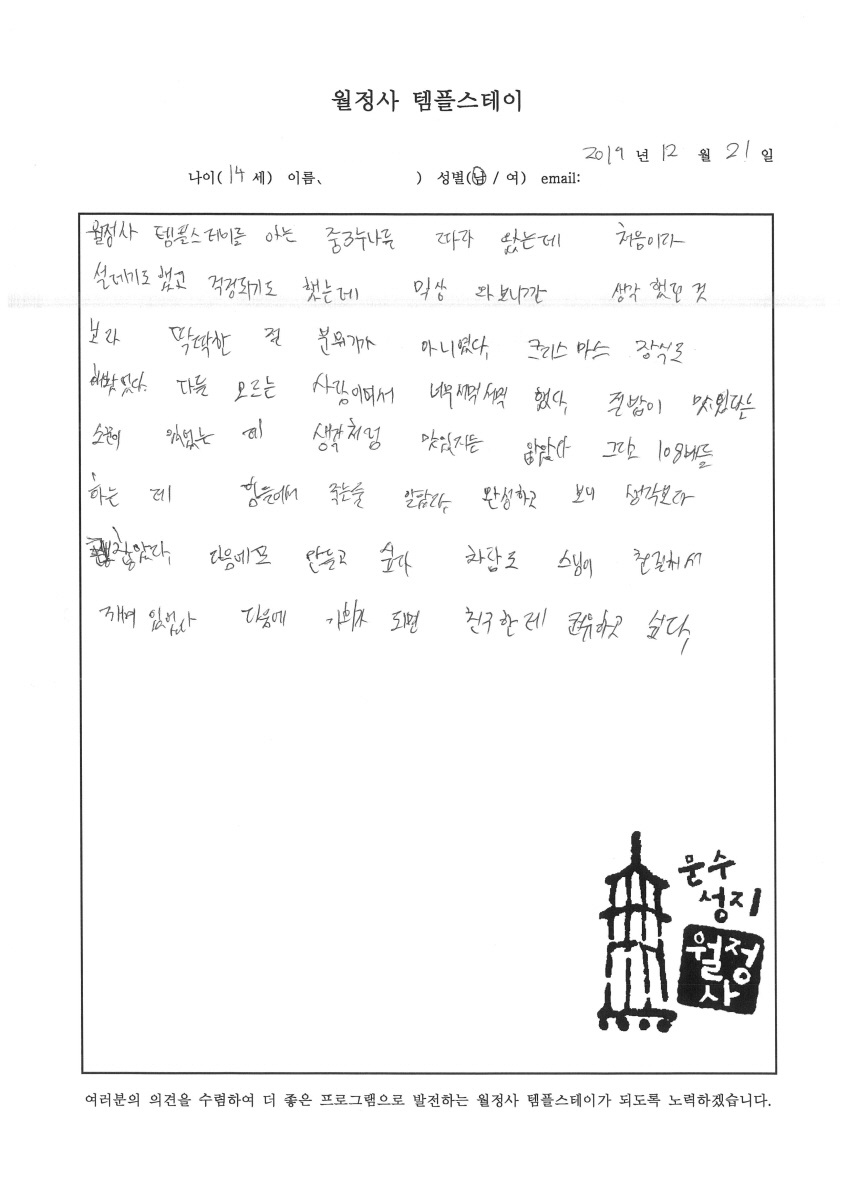 월정사 템플스테이
2019 년 12 월 21 일
나이( 14 세) 이름、 ) 성별(남 / 여) email:
월정사 템플스테이를 아는 중3누나를 따라 왔는데 처음이라
설레기도 했고 걱정되기도 했는데 막상 와보니깐 생각 했던 것
보라 딱딱한 절 분위기가 아니였다, 크리스마스 장식도
해놨었다. 다들 모르는 사람이여서 너무 서먹서먹 했다, 절밥이 맛있다는
소문이 있었는 데 생각처럼 맛있지는 않았다 그리고 108배를
하는 데 힘들어서 죽는줄 알았다, 완성하고 보니 생각보다
괜찮았다, 다음에도 만들고 싶다 차담도 스님이 친절하셔서
재미 있었다 다음에 기회가 되면 친구한테 권유하고 싶다,
문수
성지
월정
사
여러분의 의견을 수렴하여 더 좋은 프로그램으로 발전하는 월정사 템플스테이가 되도록 노력하겠습니다.